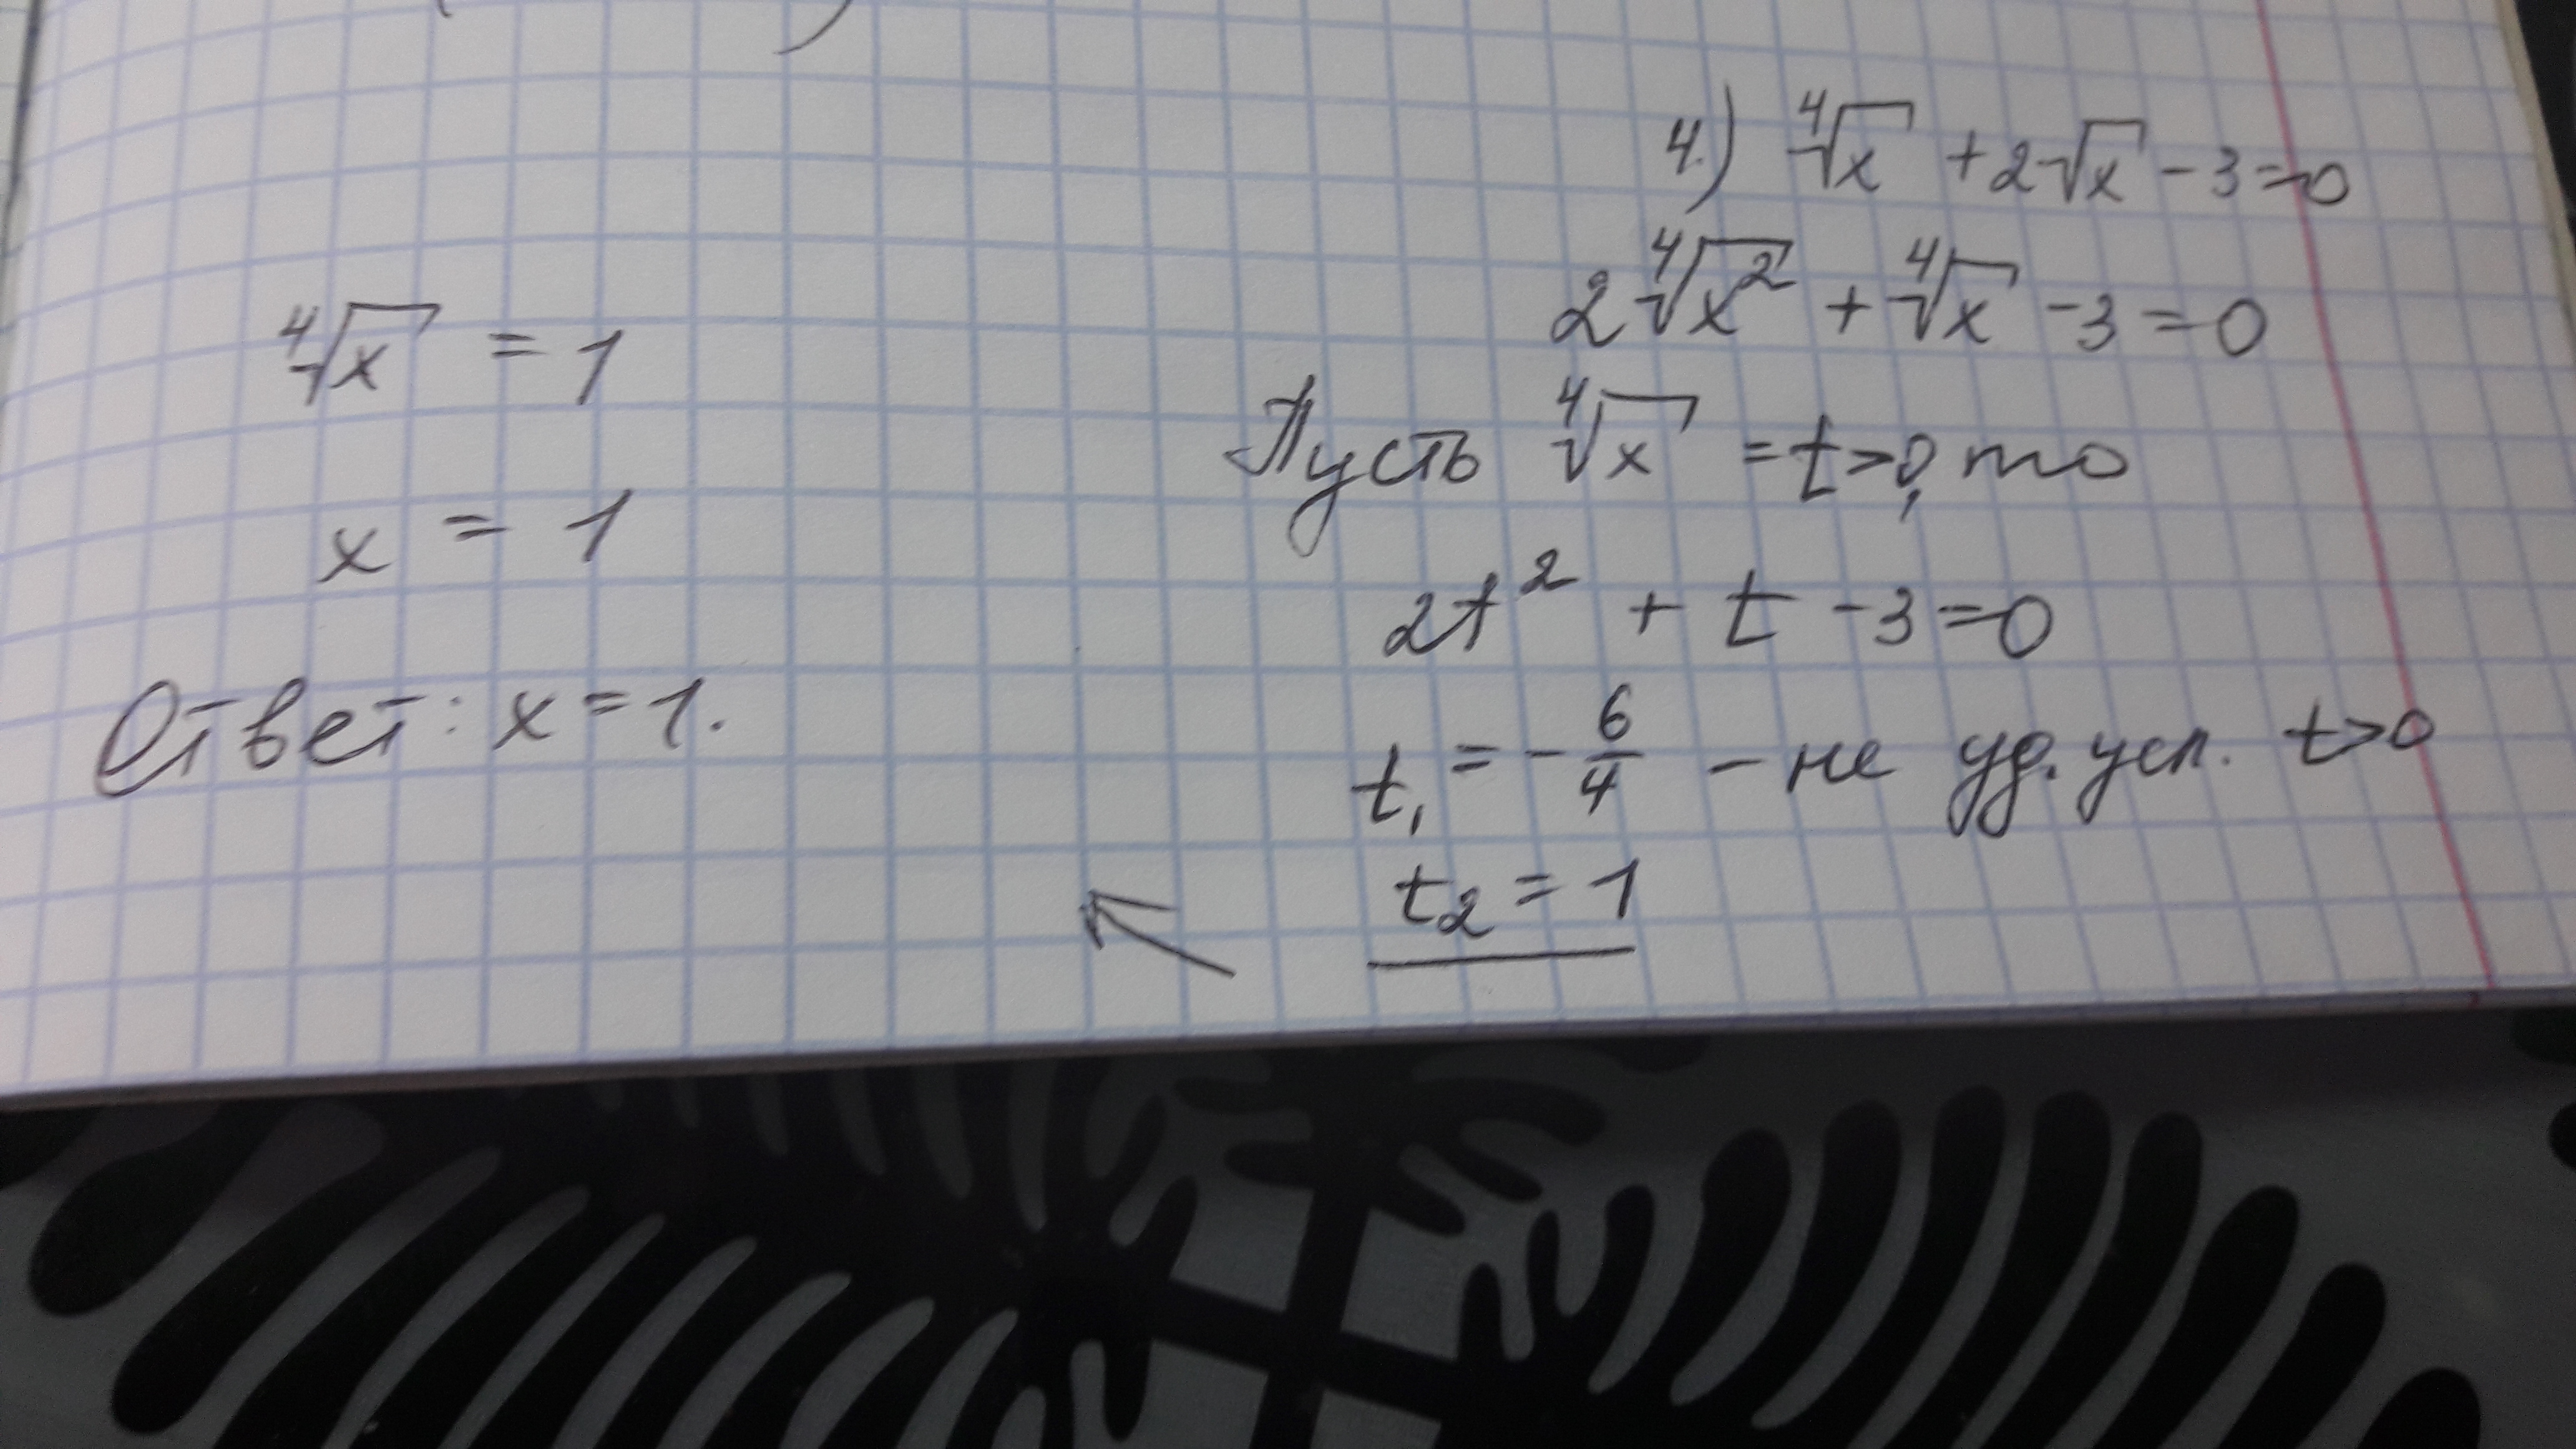 4.) ⁴√x + 2√x - 3 = 0
2 ⁴√x² + ⁴√x - 3 = 0
Пусть ⁴√x = t > 0, то
2t² + t - 3 = 0
t₁ = - 6/4 - не уд. усл. t > 0
t₂ = 1
⁴√x = 1
x = 1
Ответ: x = 1.